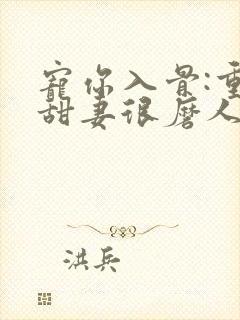 寵你入骨:重
甜妻很磨人
洪兵